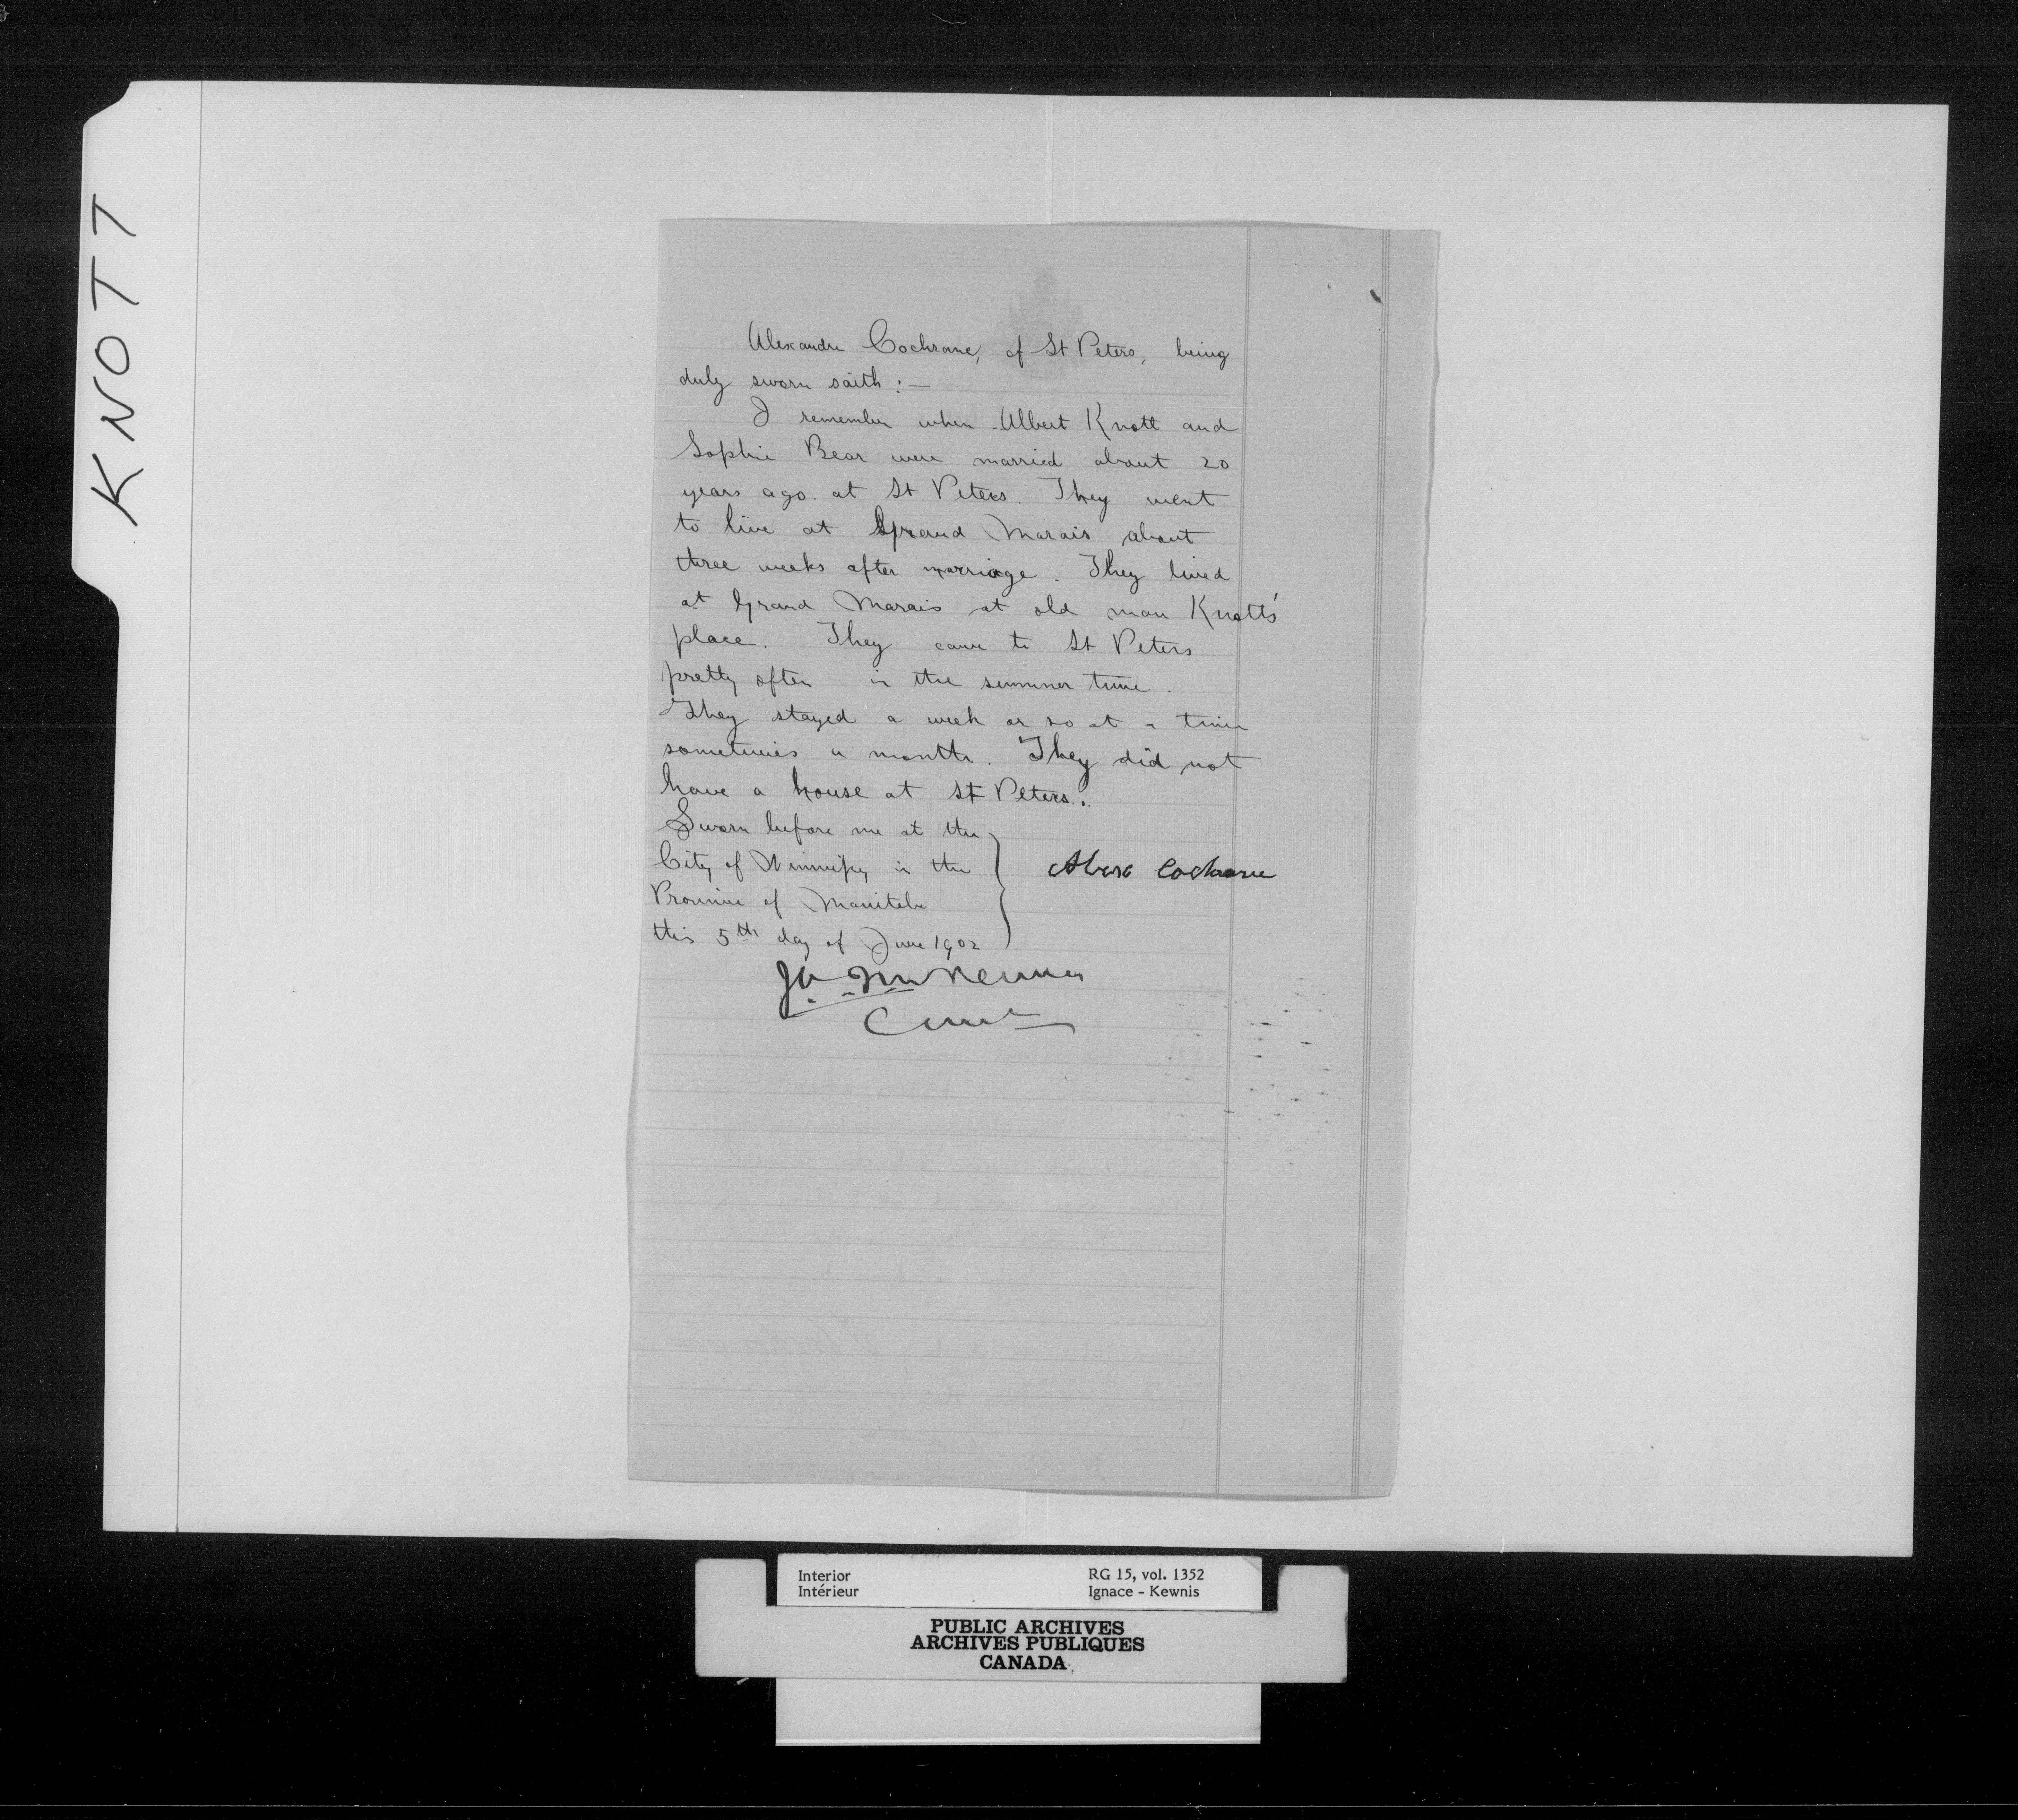 KNOTT
Alexandre Cochrane, of St Peters, being
duly sworn saith :—
I remember when Albert Knott and
Sophie Bear were married about 20
years ago at St Peters. They went
to live at Grand Marais about
three weeks after marriage. They lived
at Grand Marais at old man Knott's
place. They came to St Peters
pretty often in the summer time.
They stayed a week or so at a time
sometimes a month. They did not
have a house at St Peters.
Sworn before me at the
City of Winnipeg in the
Province of Manitoba
this 5th day of June 1902
Cochrane
McKenna
Interior
Intérieur
RG 15, vol. 1352
Ignace - Kewnis
PUBLIC ARCHIVES
ARCHIVES PUBLIQUES
CANADA